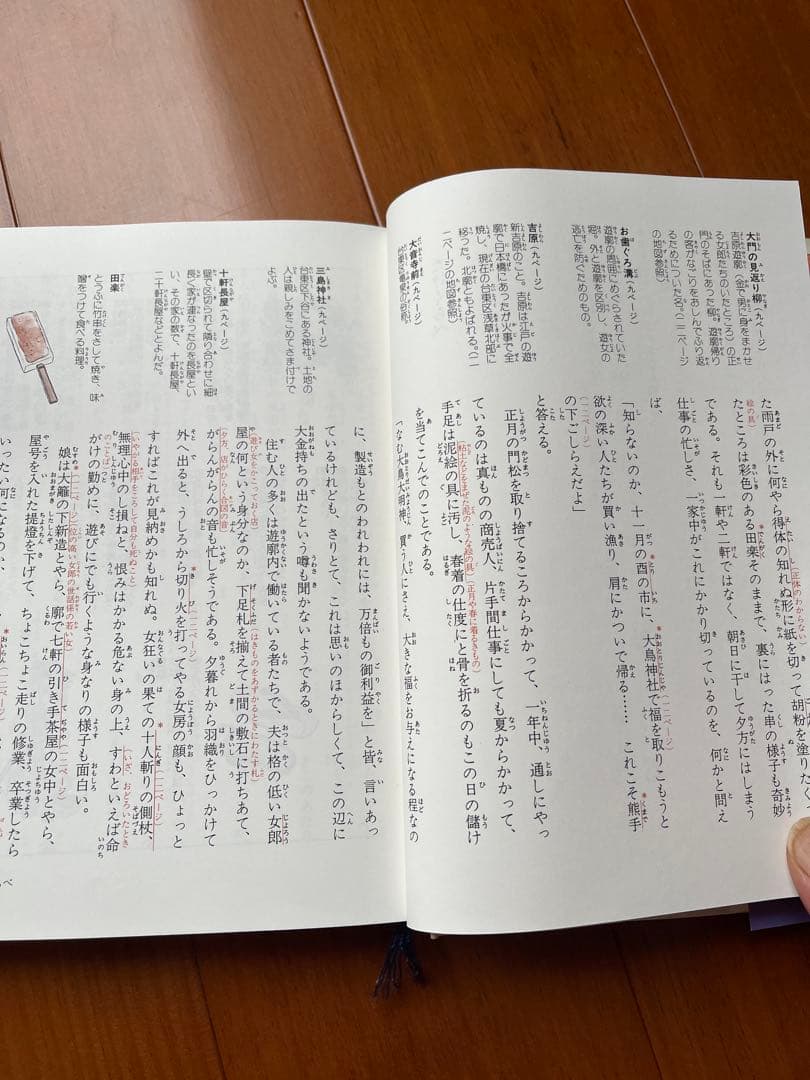 大門の見返り柳(九ページ)
吉原遊廓(金で男に身をまかせ
る女郎たちのいたところ)の正
門のそばにあった柳。遊廓帰り
の客がなごりをおしんでふり返
るためについた名。(一二ページ
の地図参照)
お歯ぐろ溝(九ページ)
遊廓の周囲にめぐらされていた
堀。外と遊廓を区別し、遊女の
逃亡を防ぐためのもの。
吉原(九ページ)
新吉原のこと。吉原は江戸の遊
廓で日本橋にあったが火事で全
焼し、現在の台東区浅草北部に
移った。北廓ともよばれる。(一
二ページの地図参照)
大音寺前(九ページ)
た雨戸の外に何やら得体の知れぬ形に紙を切って胡粉を塗りたく
(正体のわからない)
(絵の具)
たところは彩色のある田楽そのままで、裏にはった串の様子も奇妙
である。それも一軒や二軒ではなく、朝日に干して夕方にはしまう
仕事の忙しさ、一家中がこれにかかり切っているのを、何かと問え
ば、
「知らないのか、十一月の酉の市に、大鳥神社で福を取りこもうと
(一二ページ)
欲の深い人たちが買い漁り、肩にかついで帰る……これこそ熊手
(一二ページ)
の下ごしらえだよ」
と答える。
正月の門松を取り捨てるころからかかって、一年中、通しにやっ
ているのは真ものの商売人、片手間仕事にしても夏からかかって、
(粘土などをまぜた泥のような絵の具)(正月や春に着るきもの)
手足は泥絵の具に汚し、春着の仕度にと骨を折るのもこの日の儲け
を当てこんでのことである。
「なむ大鳥大明神、買う人にさえ、大きな福をお与えになる程なの
三島神社(九ページ)
台東区下谷にある神社。土地の
人は親しみをこめてさま付けで
よぶ。
十軒長屋(九ページ)
壁で区切られて隣り合わせに細
長く家が連なったのを長屋とい
い、その家の数で、十軒長屋、
二十軒長屋などとよんだ。
田楽
とうふに竹串をさして焼き、味
噌をつけて食べる料理。
に、製造もとのわれわれには、万倍もの御利益を」と皆、言いあっ
ているけれども、さりとて、これは思いのほからしくて、この辺に
大金持ちの出たという噂も聞かないようである。
住む人の多くは遊廓内で働いている者たちで、夫は格の低い女郎
屋の何という身分なのか、下足札を揃えて土間の敷石に打ちあて、
(遊女をかこっておく店)
(はきものをあずかるときにわたす札)
がらんがらんの音も忙しそうである。夕暮れから羽織をひっかけて
(夕方、店がひらく合図の音)
外へ出ると、うしろから切り火を打ってやる女房の顔も、ひょっと
(一二ページ)
すればこれが見納めかも知れぬ。女狂いの果ての十人斬りの側杖、
(一二ページ)
無理心中のし損ねと、恨みはかかる危ない身の上、すわといえば命
(いやがる相手をころして自分も死ぬこと)
(いざ。おどろいたとき
のことば)
がけの勤めに、遊びにでも行くような身なりの様子も面白い。
娘は大籬の下新造とやら、廓で七軒の引き手茶屋の女中とやら、
(一二ページ)(位の高い女郎の世話係の若い女)
(一二ページ)
屋号を入れた提燈を下げて、ちょこちょこ走りの修業、卒業したら
いったい何になるのか、